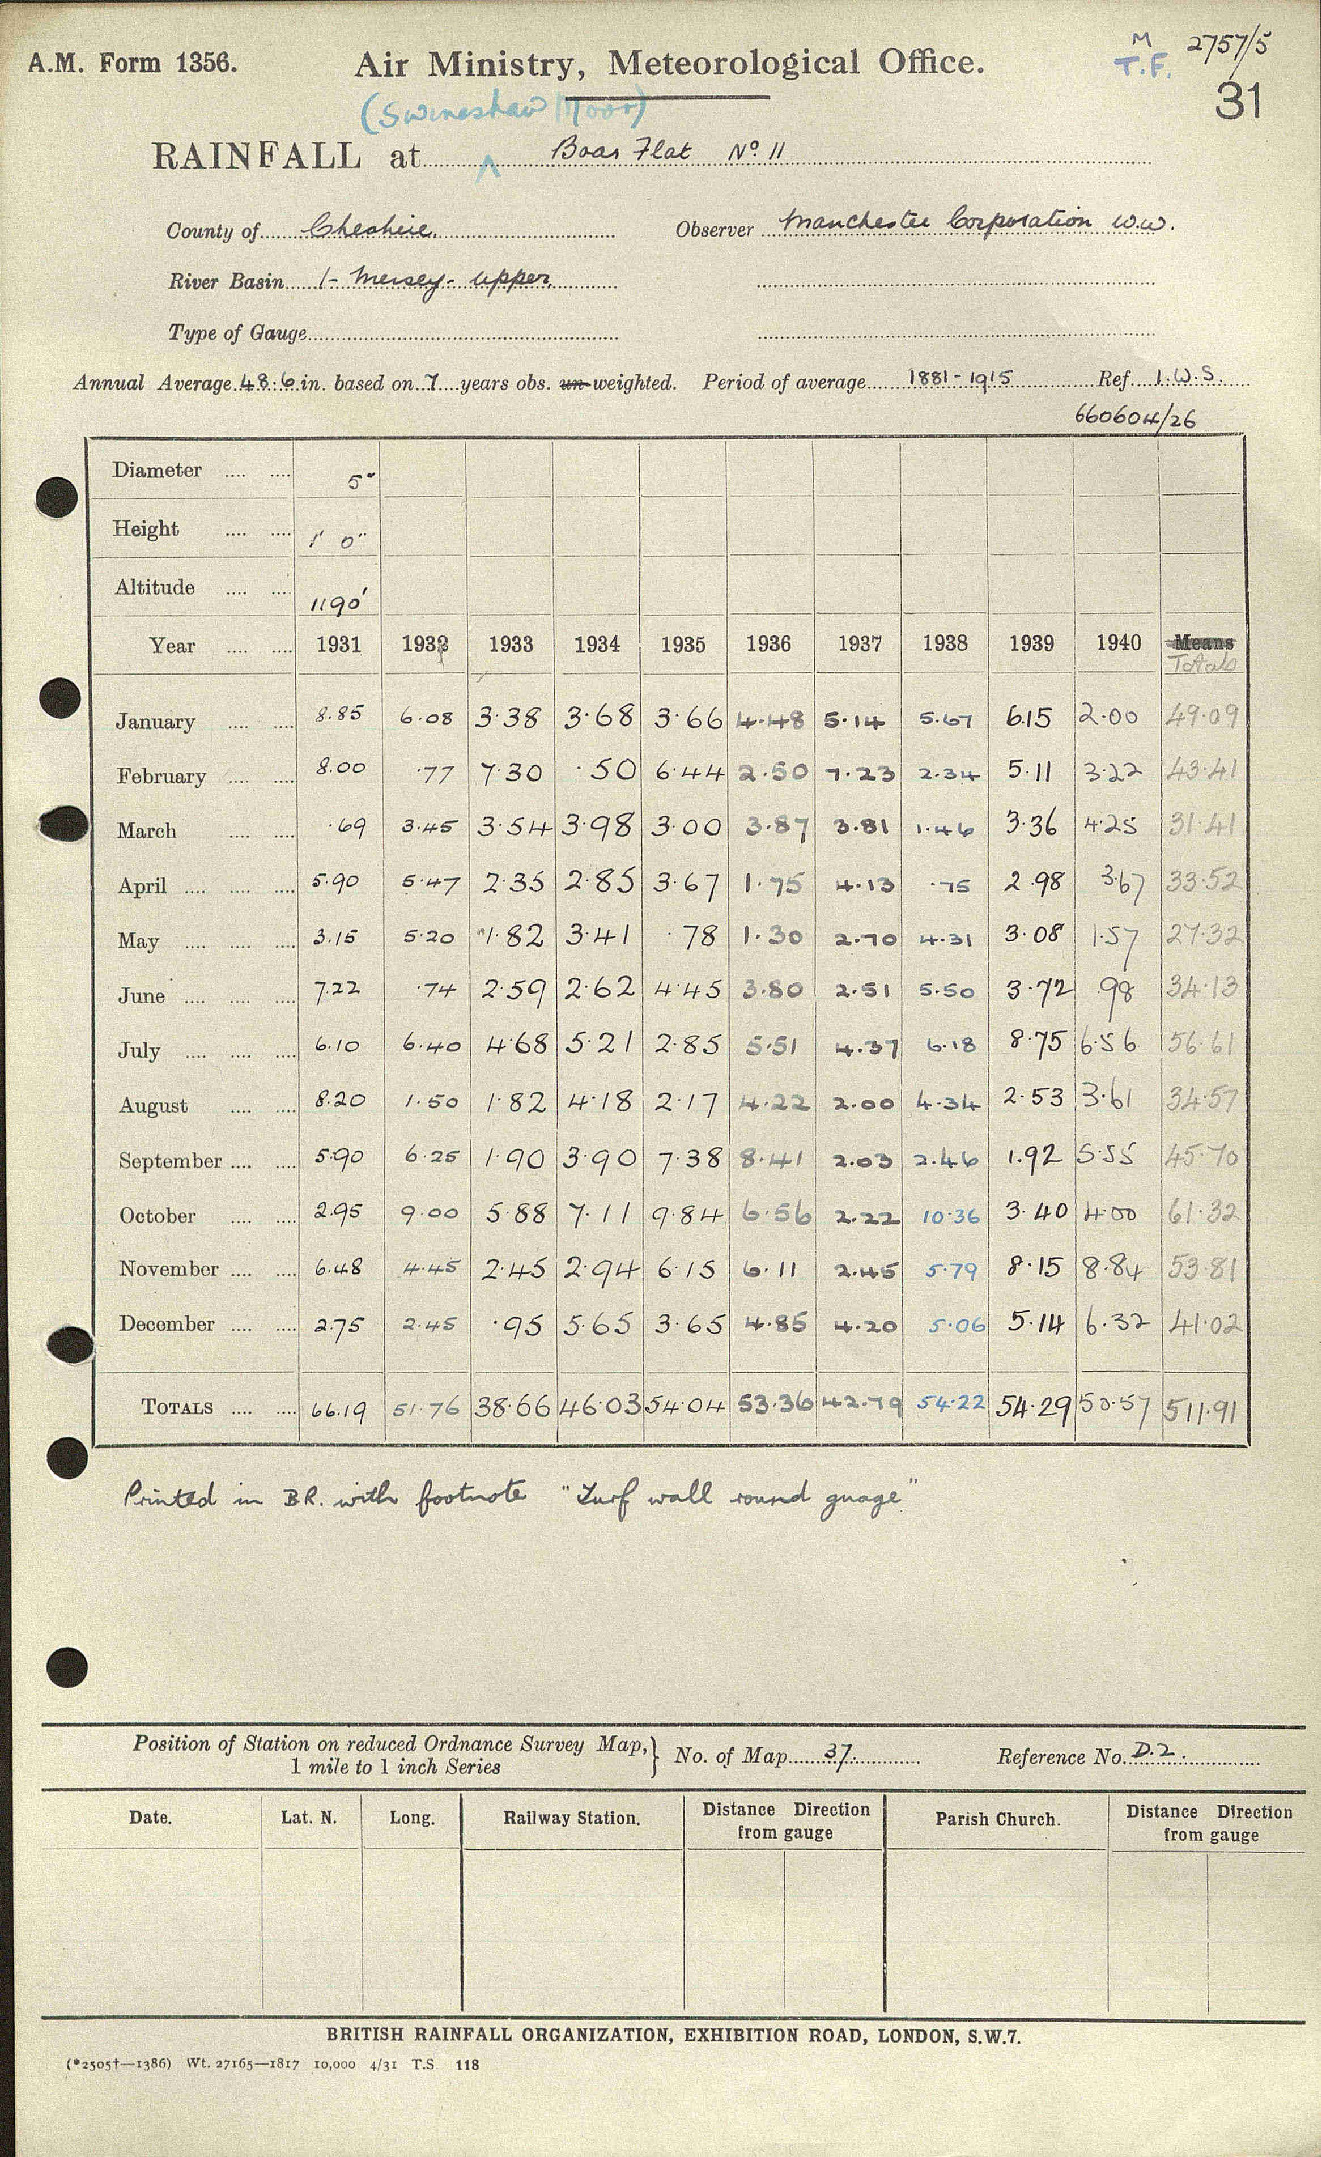 A.M. Form 1356.
Air Ministry, Meteorological Office.
M 2757/5
T.F.
31
(Swineshaw Moor)
RAINFALL at Boar Flat No 11
County of Cheshire. Observer Manchester Corporation W.W.
River Basin 1- Mersey- upper.
Type of Gauge
Annual Average 48.6 in. based on 7 years obs. un-weighted. Period of average 1881-1915 Ref. I.W.S.
660604/26
Diameter 5"
Height 1' 0"
Altitude 1190'
Year 1931 1932 1933 1934 1935 1936 1937 1938 1939 1940 Means
Totals
January 8.85 6.08 3.38 3.68 3.66 4.48 5.14 5.67 6.15 2.00 49.09
February 8.00 .77 7.30 .50 6.44 2.50 7.23 2.34 5.11 3.22 43.41
March .69 3.45 3.54 3.98 3.00 3.87 3.81 1.46 3.36 4.25 31.41
April 5.90 5.47 2.35 2.85 3.67 1.75 4.13 .75 2.98 3.67 33.52
May 3.15 5.20 1.82 3.41 .78 1.30 2.70 4.31 3.08 1.57 27.32
June 7.22 .74 2.59 2.62 4.45 3.80 2.51 5.50 3.72 .98 34.13
July 6.10 6.40 4.68 5.21 2.85 5.51 4.37 6.18 8.75 6.56 56.61
August 8.20 1.50 1.82 4.18 2.17 4.22 2.00 4.34 2.53 3.61 34.57
September 5.90 6.25 1.90 3.90 7.38 8.41 2.03 2.46 1.92 5.55 45.70
October 2.95 9.00 5.88 7.11 9.84 6.56 2.22 10.36 3.40 4.00 61.32
November 6.48 4.45 2.45 2.94 6.15 6.11 2.45 5.79 8.15 8.84 53.81
December 2.75 2.45 .95 5.65 3.65 4.85 4.20 5.06 5.14 6.32 41.02
TOTALS 66.19 51.76 38.66 46.03 54.04 53.36 42.79 54.22 54.29 50.57 511.91
Printed in B.R. with footnote "Turf wall round guage"
Position of Station on reduced Ordnance Survey Map, 1 mile to 1 inch Series } No. of Map 37. Reference No. D.2.
Date. Lat. N. Long. Railway Station. Distance Direction from gauge Parish Church. Distance Direction from gauge
BRITISH RAINFALL ORGANIZATION, EXHIBITION ROAD, LONDON, S.W.7.
(*2505†—1386) Wt. 27165—1817 10,000 4/31 T.S 118